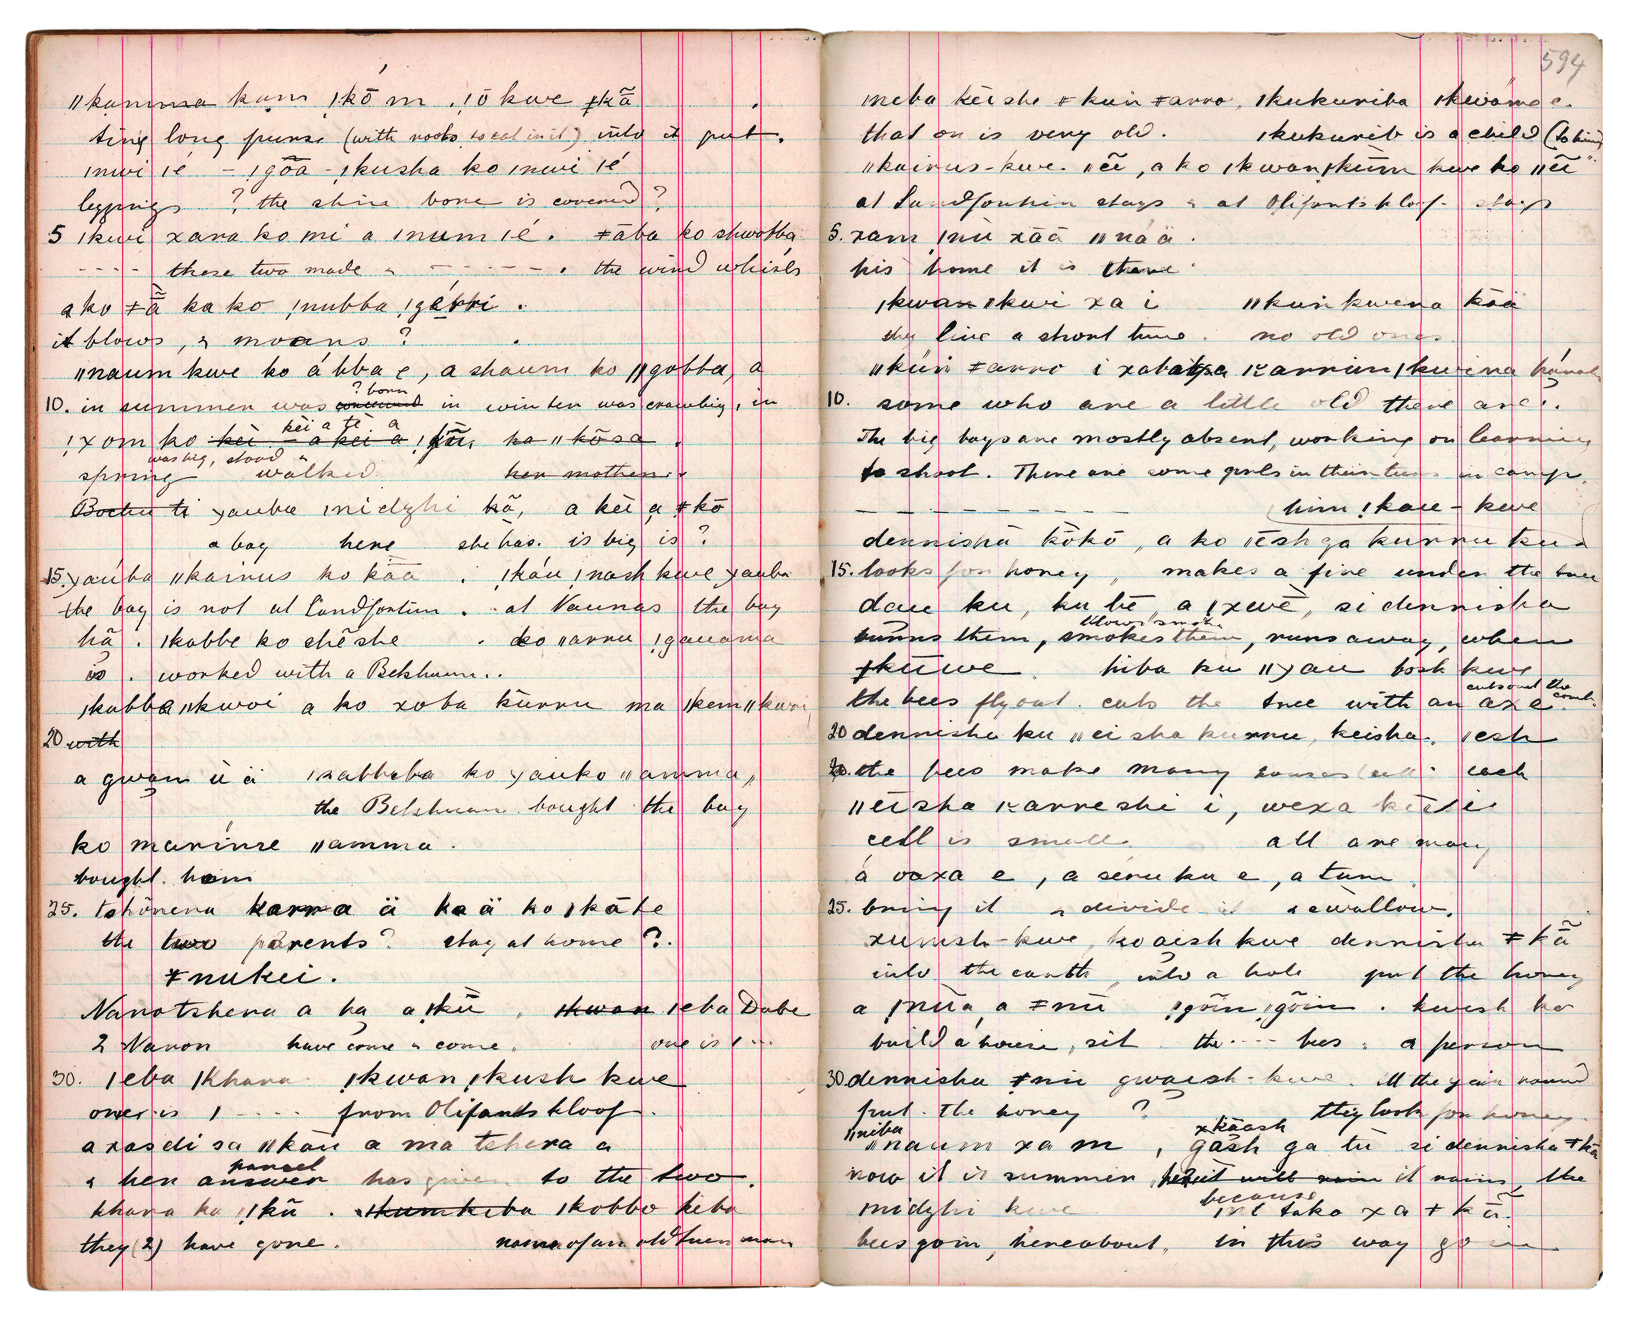 ǁkamma kam ǀkō m . ǀō kwe ǂkã
ting long purse (with roots to eat in it) into it put.
ǀnwi ıé – ǀgõa - ǀkusha ko ǀnwi ıé
leggings ? the shin bone is covered ?
5 ǀkwi xara ko mi a ǀnum ıé. ǂāba ko shwabba
---- these two made " ----- . the wind whirls
a ko ǂã ka ko ǃnubba ǃgabbi .
it blows, & moans ?
ǁnaum kwe ko á kba e, a shaum ko ǁgobba, a
10. in summer was conceived ? born in winter was crawling, in
ǃxom ko kèi – a kèi a kèi a tè a ǀkũ, ka ǁkōsa .
spring was big, stood & walked her mother.
Bochu ti yauba ǀnidzhi kã, a kèi a ǂkō
a boy here she has. is big is ?
15. yauba ǁkainus ko kāā . ǀkáu ǀnash kwe yauba
the boy is not at Sandfontein . at Naunas the boy
hã . ǀkabbe ko shēshe . ko ǁarru ǃgauama
is . worked with a Bekhuan..
ǀkabba ǁkwoi a ko xoba kùrru ma ǀkem ǁkuri
20 with
a gwam ù ä ǀxabbeba ko yauko ǁamma,
the Bekhuan bought the boy
ko marinse ǁamma .
bought him
25. tshōnena karra ä ka ä ko ǀkāte
the two parents? stay at home ?.
ǂnukei .
Narotshena a ha a ǀkũ , ǀkwan ǀeba Dabe
2 Naron have come & come. one is D...
30. ǀeba ǀKhara ǀkwan ǀkush kwe
one is ǀ .... from Olifants kloof .
a xasdi sa ǁkāu a ma tshera a
& her answer parcel has given to the two.
khara ka ǀkũ . ǀkumkeba ǀkobbo keba
they (2) have gone. name of an old bush man
594
meba kèishe ǂkuiı ǂarro, ǀkukuriba ǀkwáma e.
that on is very old. ǀkukurib is a child (to him)
ǁkainus-kwe. ǁẽ, a ko ǀkwanǀkũm kwe ko ǁẽ
at Sandfontein stays & at Olifants kloof stays
5. xam ǀnu xāā ǁnáä .
his home it is there.
ǀkwan ǁkwi xa i ǁkuiı kwena kāä
they live a short time. no old ones
ǁkúiı ǂarro i xabatsa ıcarrun ǀkwina hāna
10. some who are a little old there are.
The big boys are mostly absent, working or learning
to shoot. There are some girls in their teens in camp.
---------- hìm ǀkau - kwe
dennisha kōkō, a ko ǀēsh ga kurru ku
15. looks for honey, makes a fire under the tree
dau ku, ku tē, a ǀxwē, si dennisha
burns them, blows smoke smokes them, runs away, when
ǂkūwe . hiba ku ǁyau bosh kwe
the bees fly out. cuts the tree with an axe. cuts out the comb.
20 dennisha ku ǁei sha kurru, keisha. ǀesh
the bees make many houses (cells) each
ǁēisha ıcarreshi i, wexa kèisi
cell is small. all are many
á oaxa e, a sēruka e, a tum .
25. bring it & divide it & swallow.
xumsh-kwe, ko aesh kwe dennisha ǂkã
into the earth, into a hole put the honey
a ǀnūa a ǂnū ǀgõin ǀgõin . kwesh ko
build a house, sit the --- bees . a person
30 dennisha ǂnū gwaesh-kwe. All the year round
put. The honey ? they look for honey.
ǁniba ǁnaum xa m , xkāash gāsh ga tū si dennisha ǂkã
now it is summer, here it will rain it rains, the
midzhi kwe because int tako xa ǂkũ.
bees go in, hereabout, in this way go in